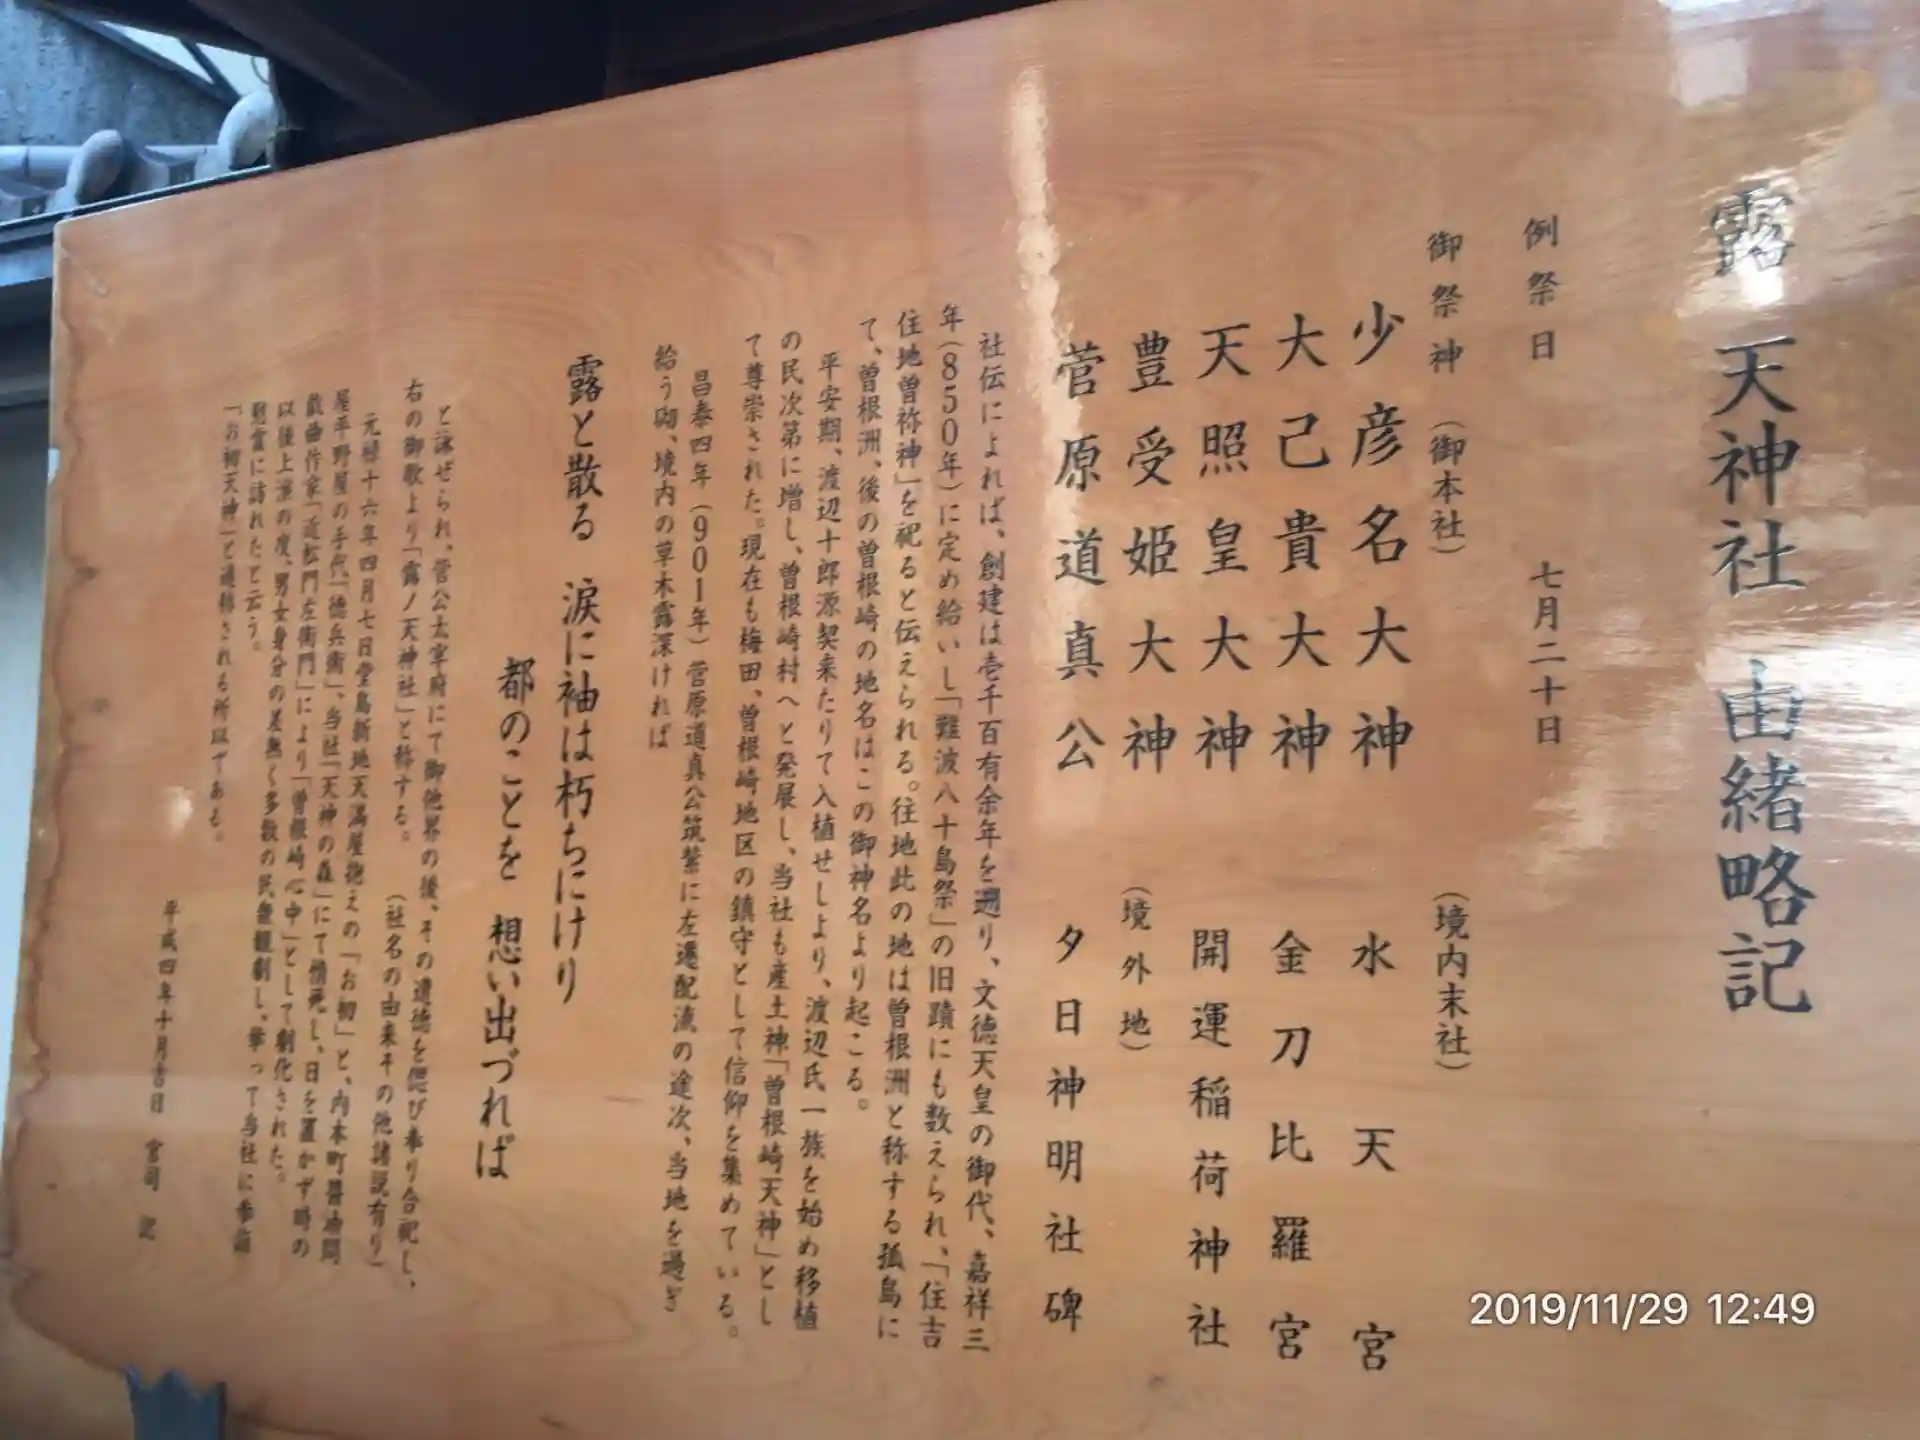 露 天神社 由緒略記
例祭日 七月二十日
御祭神 (御本社)
(境内末社)
少彦名大神 水天宮
大己貴大神 金刀比羅宮
天照皇大神 開運稲荷神社
豊受姫大神 (境外地)
菅原道真公 夕日神明社碑
社伝によれば、創建は壱千百有余年を遡り、文徳天皇の御代、嘉祥三
年(850年)に定め給いし「難波八十島祭」の旧蹟にも数えられ、「住吉
住地曽祢神」を祀ると伝えられる。往地此の地は曽根洲と称する孤島に
て、曽根洲、後の曽根崎の地名はこの御神名より起こる。
平安期、渡辺十郎源契来たりて入植せしより、渡辺氏一族を始め移植
の民次第に増し、曽根崎村へと発展し、当社も産土神「曽根崎天神」とし
て尊崇された。現在も梅田、曽根崎地区の鎮守として信仰を集めている。
昌泰四年(901年)菅原道真公筑紫に左遷配流の途次、当地を過ぎ
給う砌、境内の草木露深ければ
露と散る 涙に袖は朽ちにけり
都のことを 想い出づれば
と詠ぜられ、菅公太宰府にて御他界の後、その遺徳を偲び奉り合祀し、
右の御歌より「露ノ天神社」と称する。 (社名の由来その他諸説有り)
元禄十六年四月七日堂島新地天満屋抱えの「お初」と、内本町醤油問
屋平野屋の手代「徳兵衛」、当社「天神の森」にて情死し、日を置かず時の
戯曲作家「近松門左衛門」により「曽根崎心中」として劇化された。
以後上演の度、男女身分の差無く多数の民衆観劇し、挙って当社に参詣
慰霊に訪れたと云う。
「お初天神」と通称される所以である。
平成四年十月吉日 宮司 記
2019/11/29 12:49